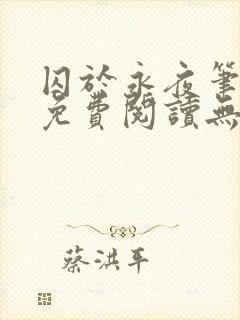 囚於永夜筆
免費閱讀無
蔡洪平